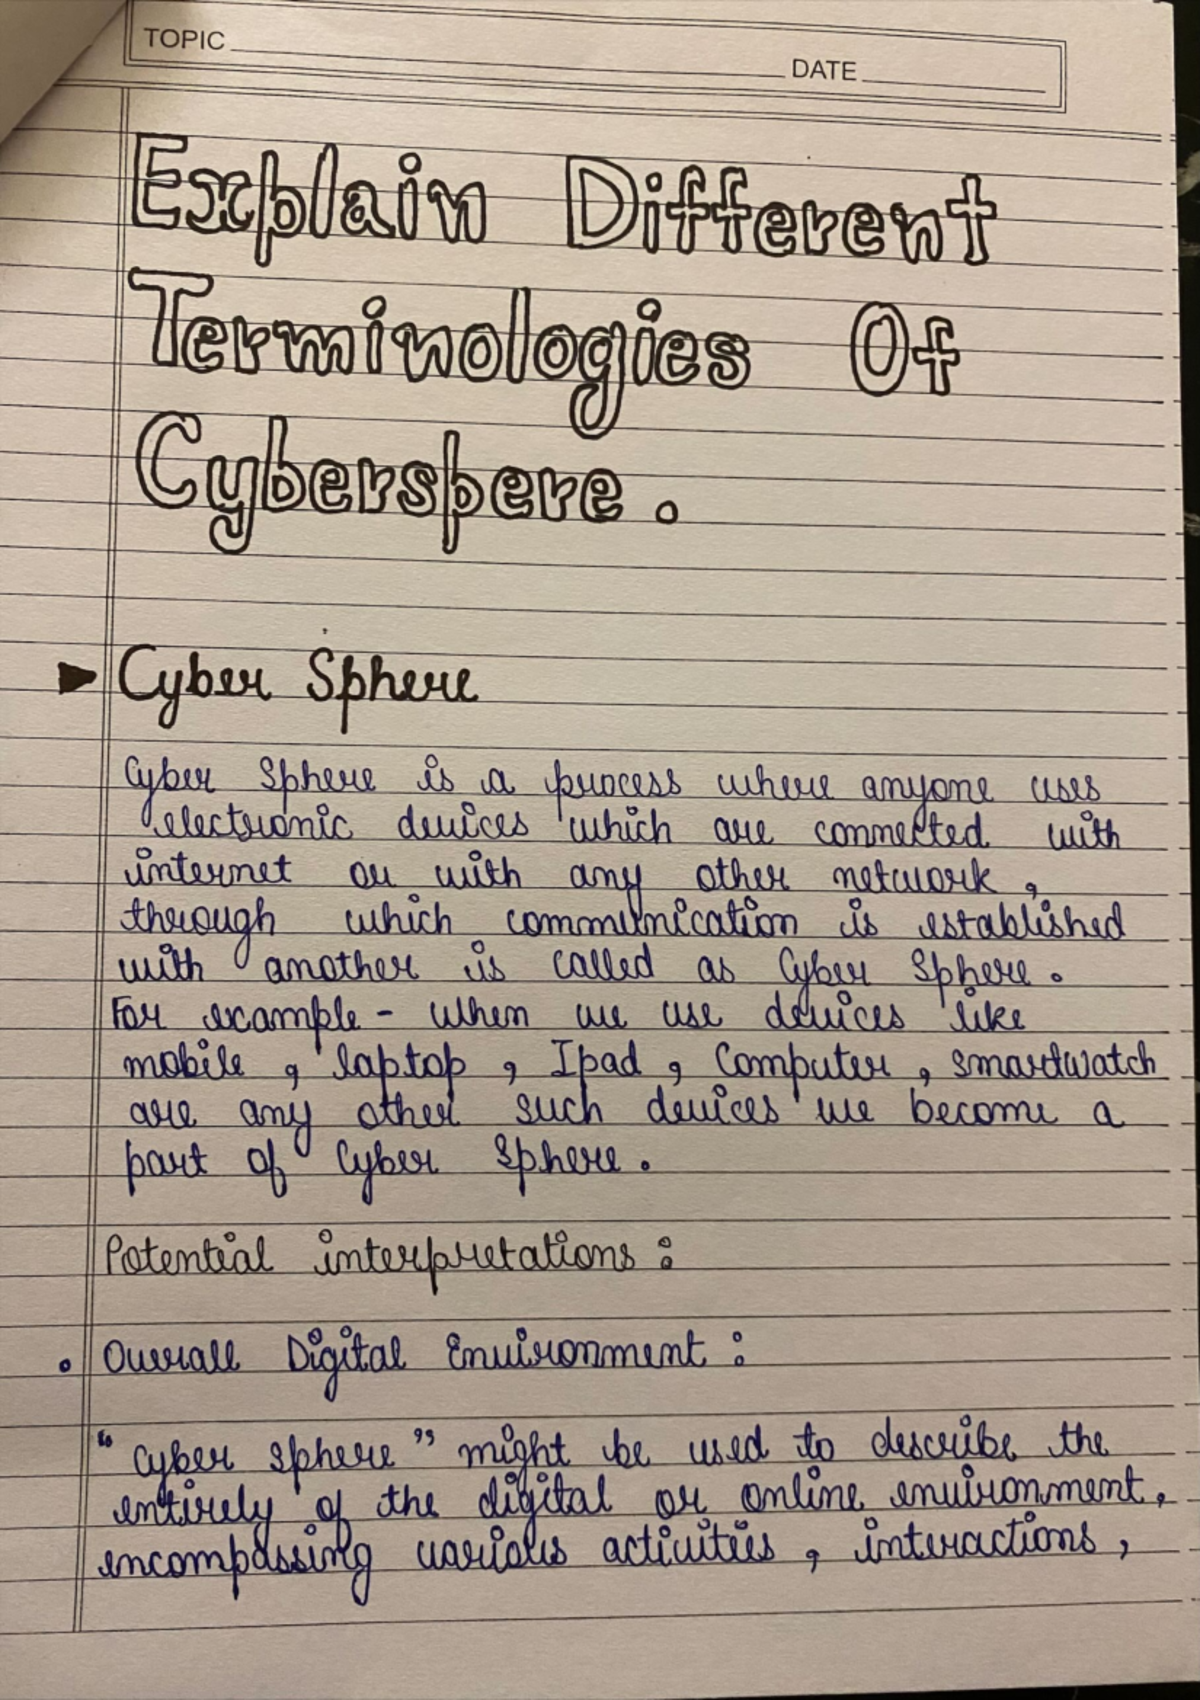 TOPIC DATE
Explain Different
Terminologies Of
Cyberspere.
Cyber Sphere
Cyber Sphere is a process where anyone uses
electronic devices which are connected with
internet or with any other network,
through which communication is established
with another is called as Cyber Sphere.
For example - When we use devices like
mobile, laptop, Ipad, Computer, smartwatch
are any other such devices we become a
part of Cyber Sphere.
Potential interpretations:
• Overall Digital Environment:
"Cyber Sphere" might be used to describe the
entirely of the digital or online environment,
encompassing various activities, interactions,